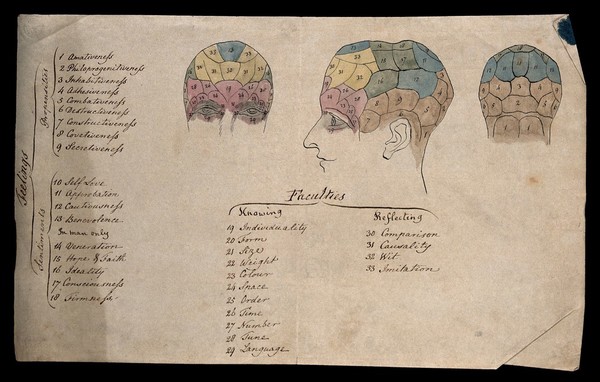 Feelings
Propensities
1 Amativeness
2 Philoprogenitiveness
3 Inhabitiveness
4 Adhesiveness
5 Combativeness
6 Destructiveness
7 Constructiveness
8 Covetiveness
9 Secretiveness
Sentiments
10 Self Love
11 Approbation
12 Cautiousness
13 Benevolence
In man only
14 Veneration
15 Hope & Faith
16 Ideality
17 Consciousness
18 Firmness
Faculties
Knowing
19 Individuality
20 Form
21 Size
22 Weight
23 Colour
24 Space
25 Order
26 Time
27 Number
28 Tune
29 Language
Reflecting
30 Comparison
31 Causality
32 Wit
33 Imitation